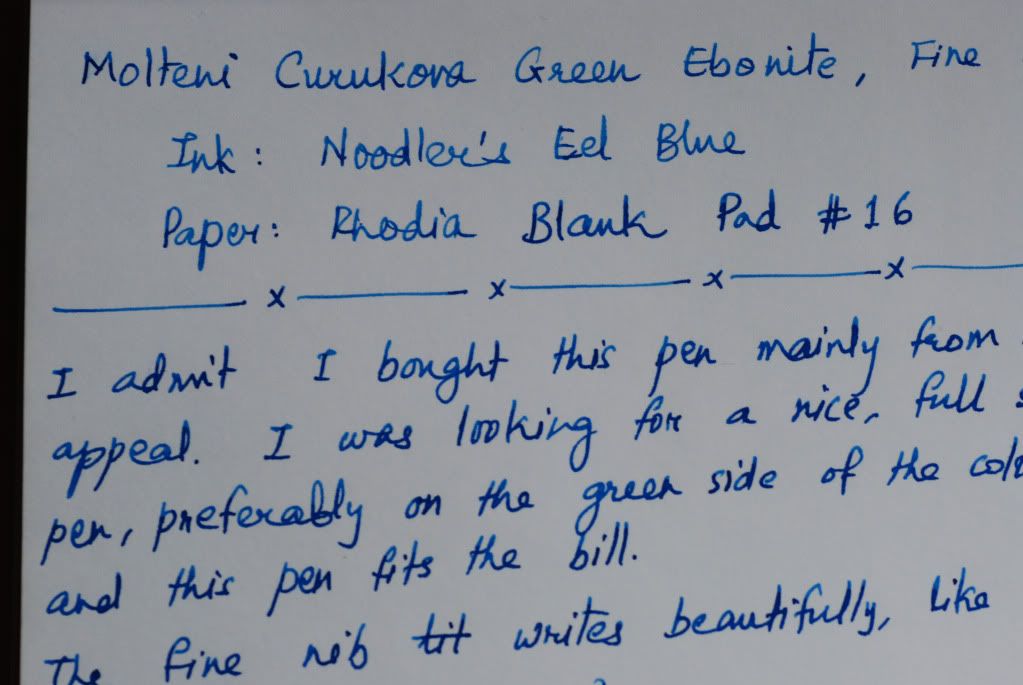 Molteni Curukova Green Ebonite, Fine
Ink: Noodler's Eel Blue
Paper: Rhodia Blank Pad #16
x x x x
I admit I bought this pen mainly from
appeal. I was looking for a nice, full
pen, preferably on the green side of the
and this pen fits the bill.
The fine nib tit writes beautifully, like